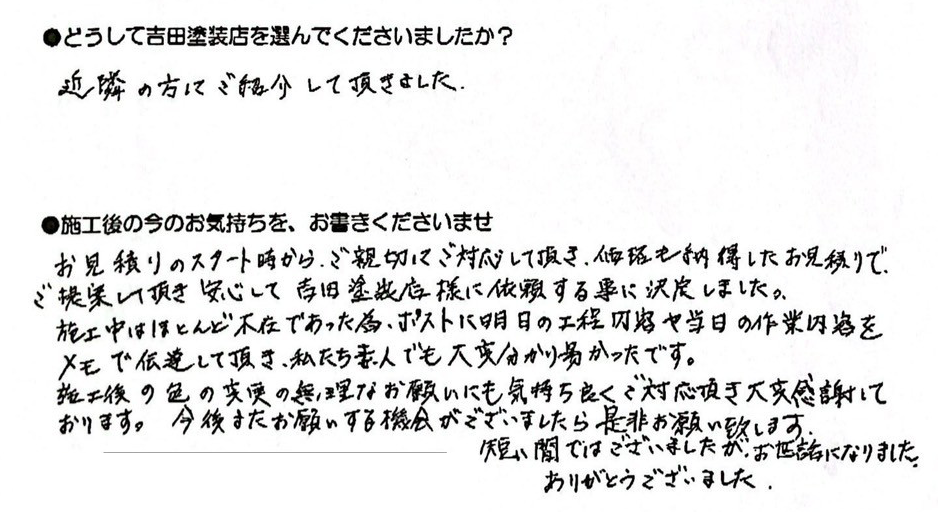 ●どうして吉田塗装店を選んでくださいましたか？
近隣の方にご紹介して頂きました.
●施工後の今のお気持ちを、お書きくださいませ
お見積りのスタート時から、ご親切にご対応して頂き、価格も納得したお見積りで、
ご提案して頂き安心して吉田塗装店様に依頼する事に決定しました。
施工中はほとんど不在であった為、ポストに明日の工程内容や当日の作業内容を
メモで伝達して頂き、私たち素人でも大変分かり易かったです。
施工後の色の変更の無理なお願いにも気持ち良くご対応頂き大変感謝して
おります。今後またお願いする機会がございましたら是非お願い致します.
短い間ではございましたが、お世話になりました。
ありがとうございました.